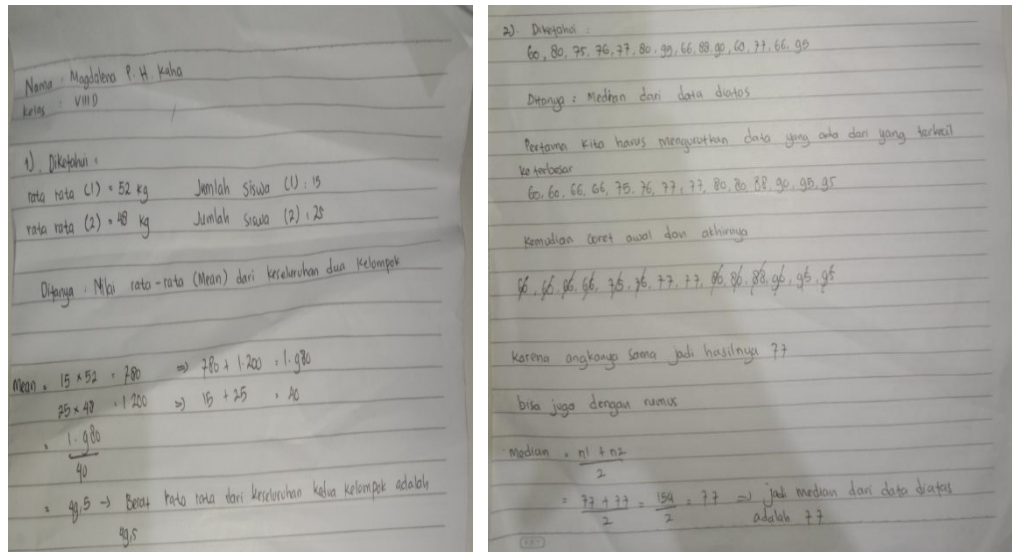 Nama : Magdalena P. H Kaha
Kelas : VIII D
1). Diketahui :
rata rata (1) = 52 kg Jumlah siswa (1) : 15
rata rata (2) = 48 kg Jumlah siswa (2) : 25
Ditanya : Nilai rata-rata (Mean) dari keseluruhan dua kelompok
Mean = 15 x 52 = 780 => 780 + 1.200 = 1.980
25 x 48 = 1.200 => 15 + 25 = 40
= 1.980
40
= 49,5 -> Berat rata rata dari keseluruhan kedua kelompok adalah
49,5
2). Diketahui :
60, 80, 75, 76, 77, 80, 95, 66, 88, 90, 60, 77, 66, 95
Ditanya : Median dari data diatas
Pertama kita harus mengurutkan data yang ada dari yang terkecil
ke terbesar
60, 60, 66, 66, 75, 76, 77, 77, 80, 80, 88, 90, 95, 95
Kemudian coret awal dan akhirnya
66, 75, 76, 77, 77, 80, 80, 88, 90, 95, 95
Karena angkanya sama jadi hasilnya 77
bisa juga dengan rumus
Median = n1 + n2
2
= 77 + 77 = 154 = 77 => jadi median dari data diatas
2 2 adalah 77